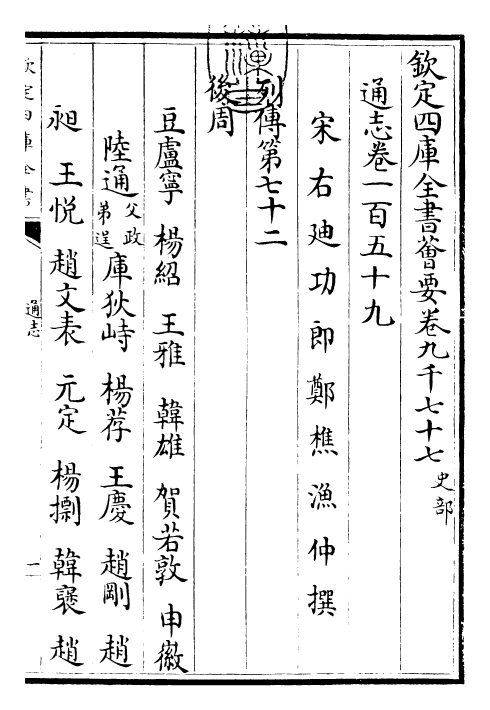 欽定四庫全書薈要卷九千七十七 史部
通志卷一百五十九
宋右廸功郎鄭樵漁仲撰
列傳第七十二
後周
豆盧寧 楊紹 王雅 韓雄 賀若敦 申徽
陸通 父政 弟逞 庫狄峙 楊荐 王慶 趙剛 趙
昶 王悅 趙文表 元定 楊摽 韓褒 趙
欽定四庫全書
通志
一